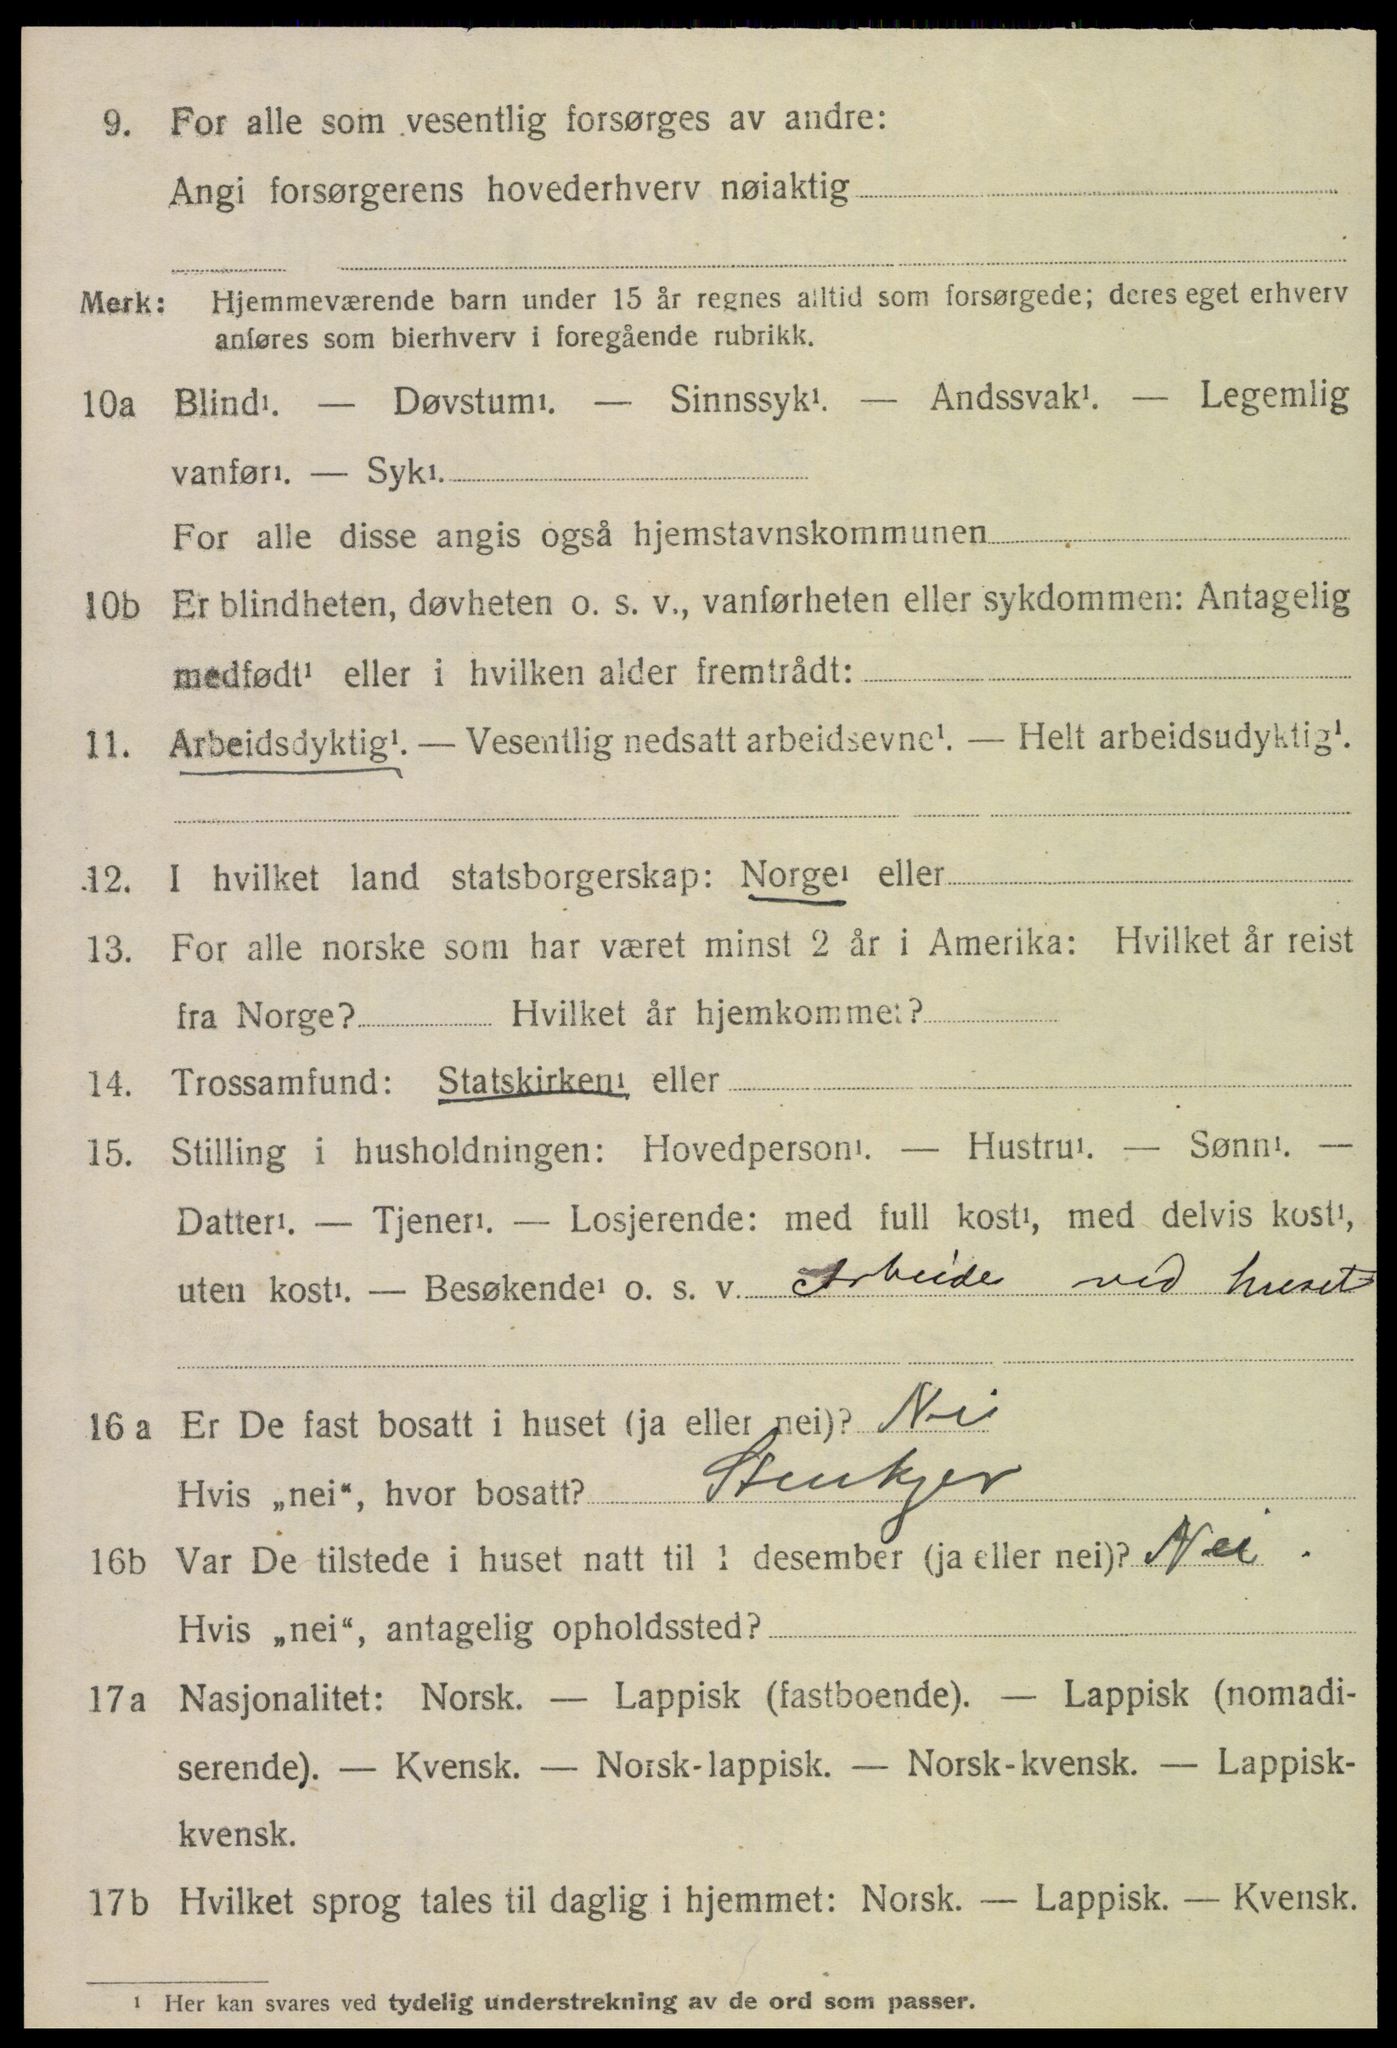 9. For alle som vesentlig forsørges av andre:
Angi forsørgerens hovederhverv nøiaktig
Merk: Hjemmeværende barn under 15 år regnes alltid som forsørgede; deres eget erhverv
anføres som bierhverv i foregående rubrikk.
10a Blind¹. — Døvstum¹. — Sinnssyk¹. — Andssvak¹. — Legemlig
vanfør¹. — Syk¹.
For alle disse angis også hjemstavnskommunen
10b Er blindheten, døvheten o. s. v., vanførheten eller sykdommen: Antagelig
medfødt¹ eller i hvilken alder fremtrådt:
11. Arbeidsdyktig¹. — Vesentlig nedsatt arbeidsevne¹. — Helt arbeidsudyktig¹.
12. I hvilket land statsborgerskap: Norge¹ eller
13. For alle norske som har været minst 2 år i Amerika: Hvilket år reist
fra Norge? Hvilket år hjemkommet?
14. Trossamfund: Statskirken¹ eller
15. Stilling i husholdningen: Hovedperson¹. — Hustru¹. — Sønn¹. —
Datter¹. — Tjener¹. — Losjerende: med full kost¹, med delvis kost¹,
uten kost¹. — Besøkende¹ o. s. v. Arbeide ved huset
16 a Er De fast bosatt i huset (ja eller nei)? Nei
Hvis „nei“, hvor bosatt? Stenkjer
16b Var De tilstede i huset natt til 1 desember (ja eller nei)? Nei.
Hvis „nei“, antagelig opholdssted?
17a Nasjonalitet: Norsk. — Lappisk (fastboende). — Lappisk (nomadi-
serende). — Kvensk. — Norsk-lappisk. — Norsk-kvensk. — Lappisk-
kvensk.
17b Hvilket sprog tales til daglig i hjemmet: Norsk. — Lappisk. — Kvensk.
¹ Her kan svares ved tydelig understrekning av de ord som passer.